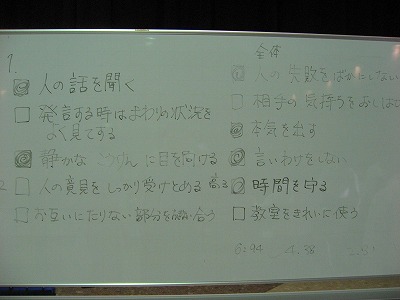 1.
人の話を聞く
発言する時はまわりの状況を
よく見てする
静かな に目を向ける
2 人の意見をしっかり受けとめる
お互いにたりない部分を 合う
全体
人の失敗をばかにしない
相手の気持ちを
本気を出す
言いわけをしない
時間を守る
教室をきれいに使う
6:94 4.38